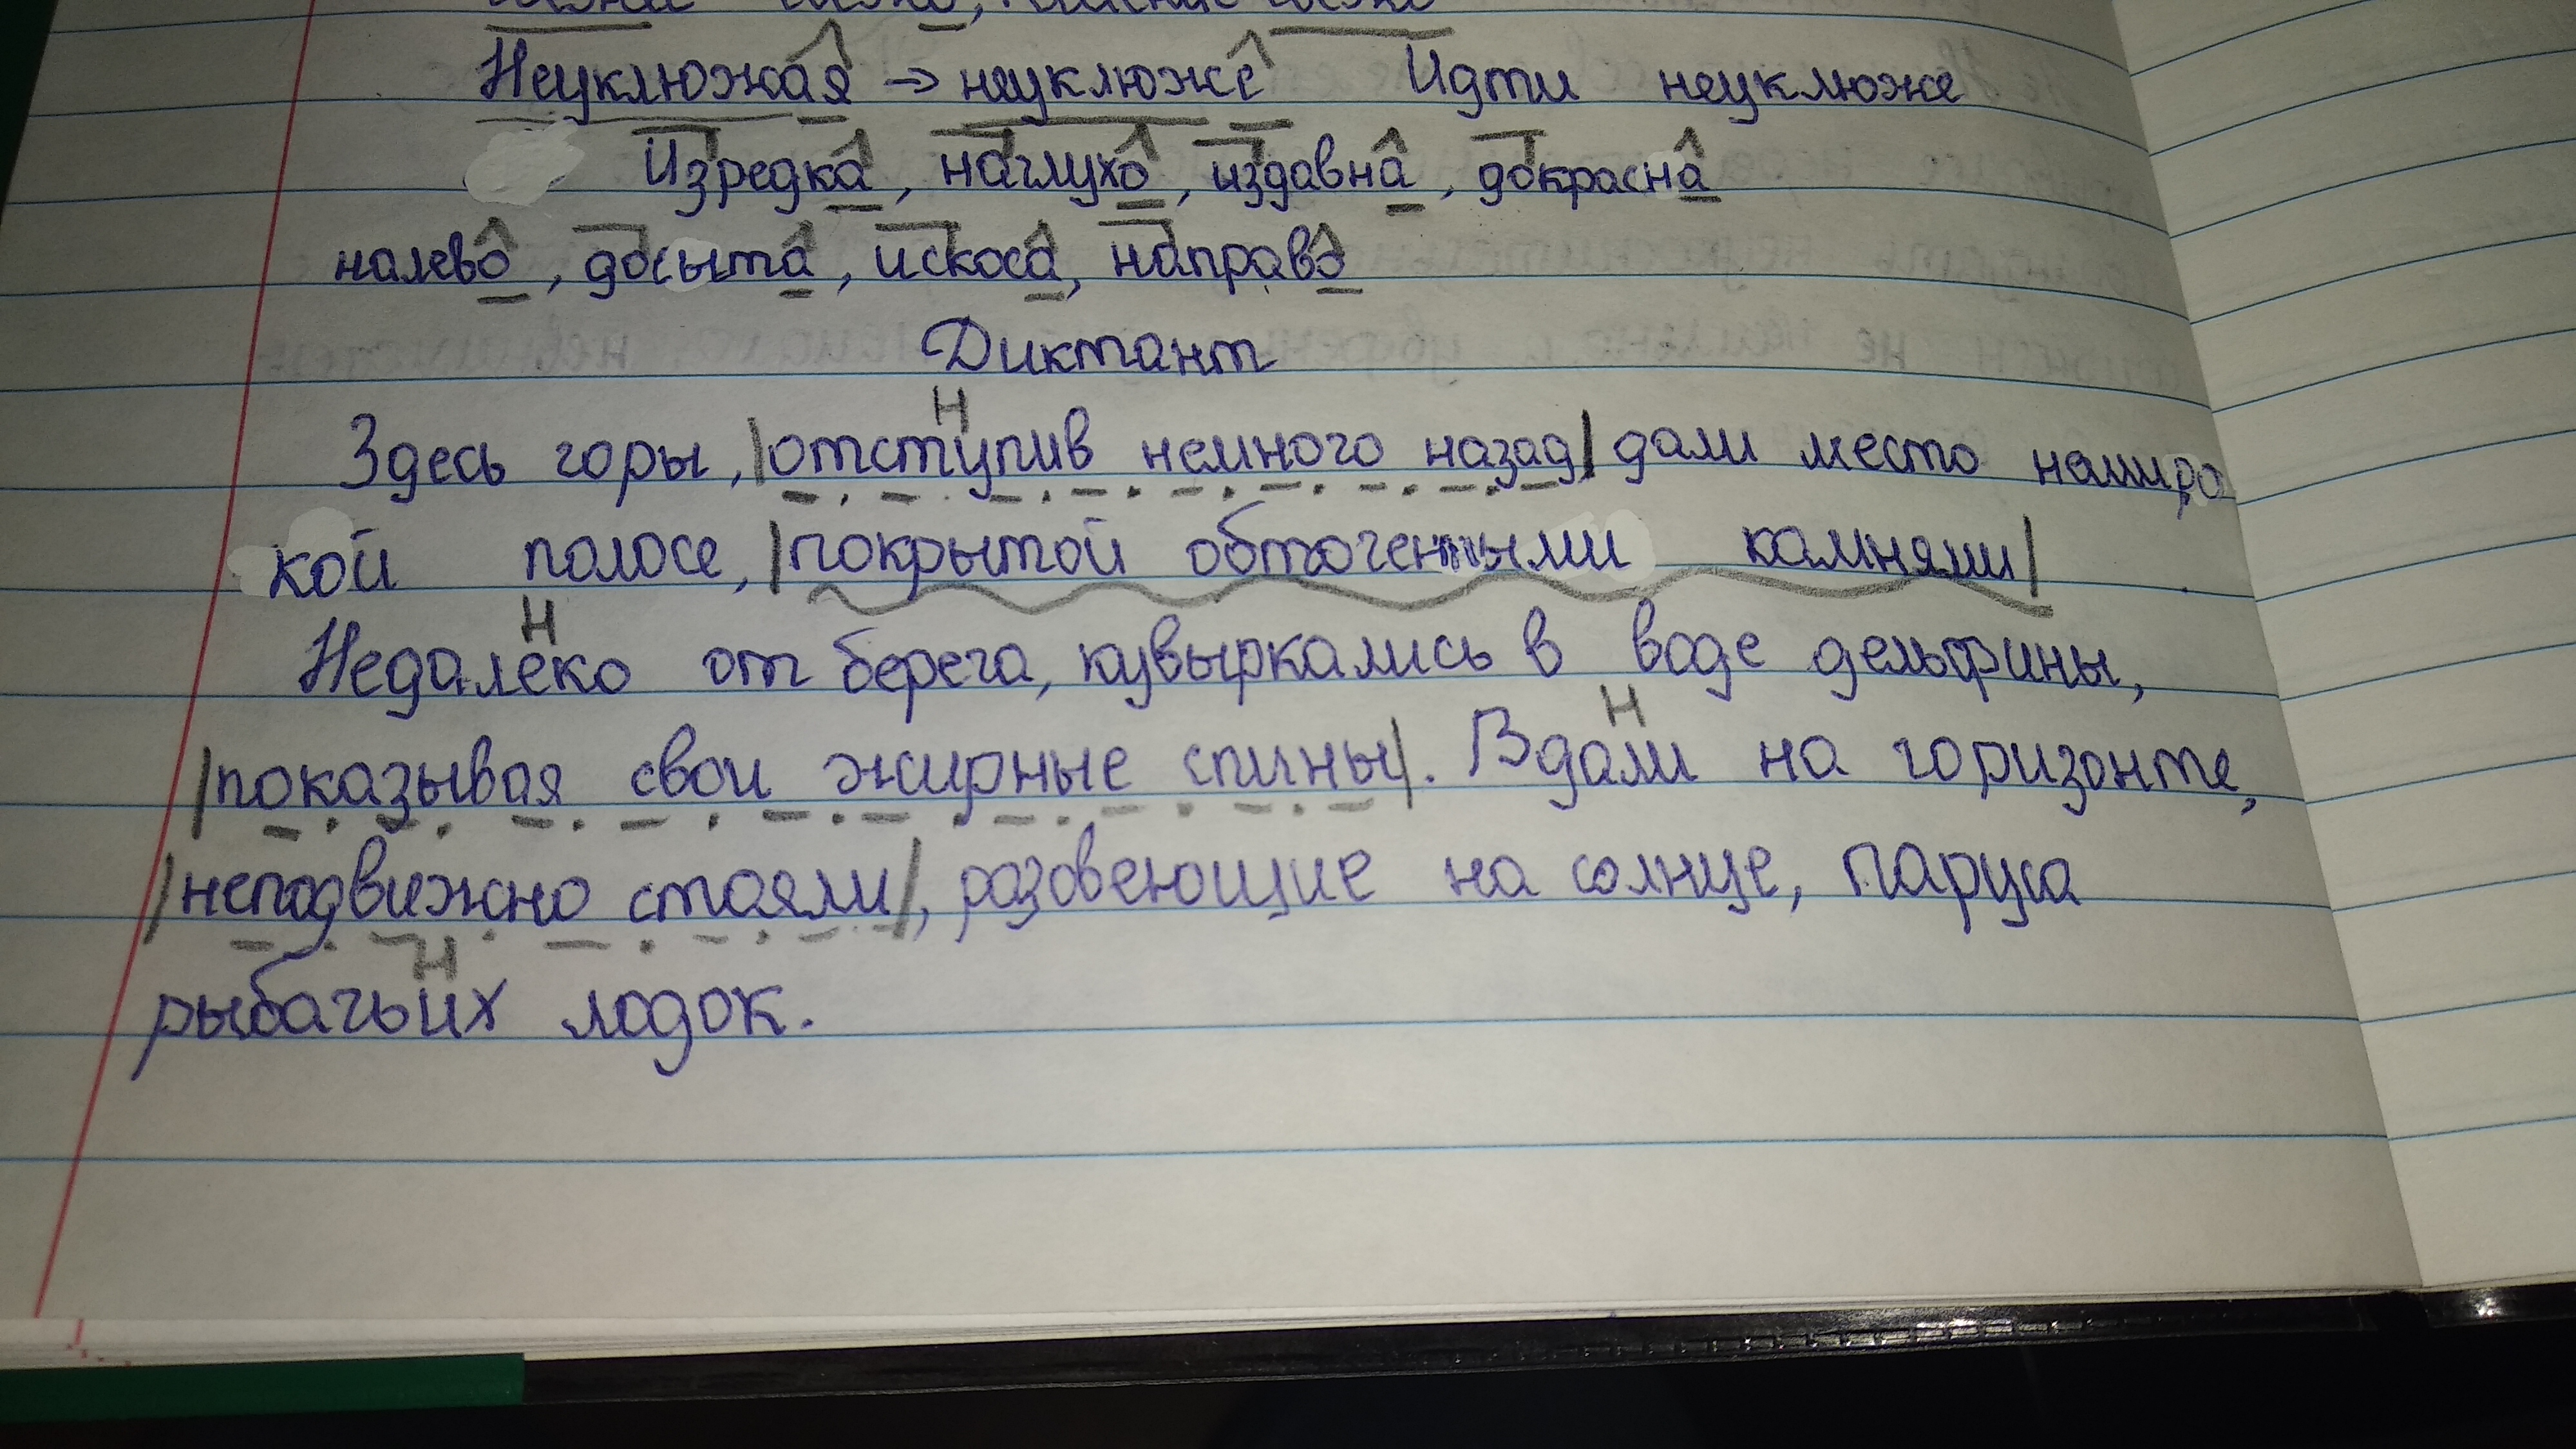 Неуклюжая → неуклюже Идти неуклюже
Изредка, наглухо, издавна, докрасна
налево, досыта, искоса, направо
Диктант
Н
Здесь горы, |отступив немного назад| дали место наширо
кой полосе, |покрытой обточенными камнями|
Н
Недалеко от берега, кувыркались в воде дельфины,
Н
|показывая свои жирные спины|. Вдали на горизонте,
|неподвижно стояли|, розовеющие на солнце, паруса
Н
рыбачьих лодок.